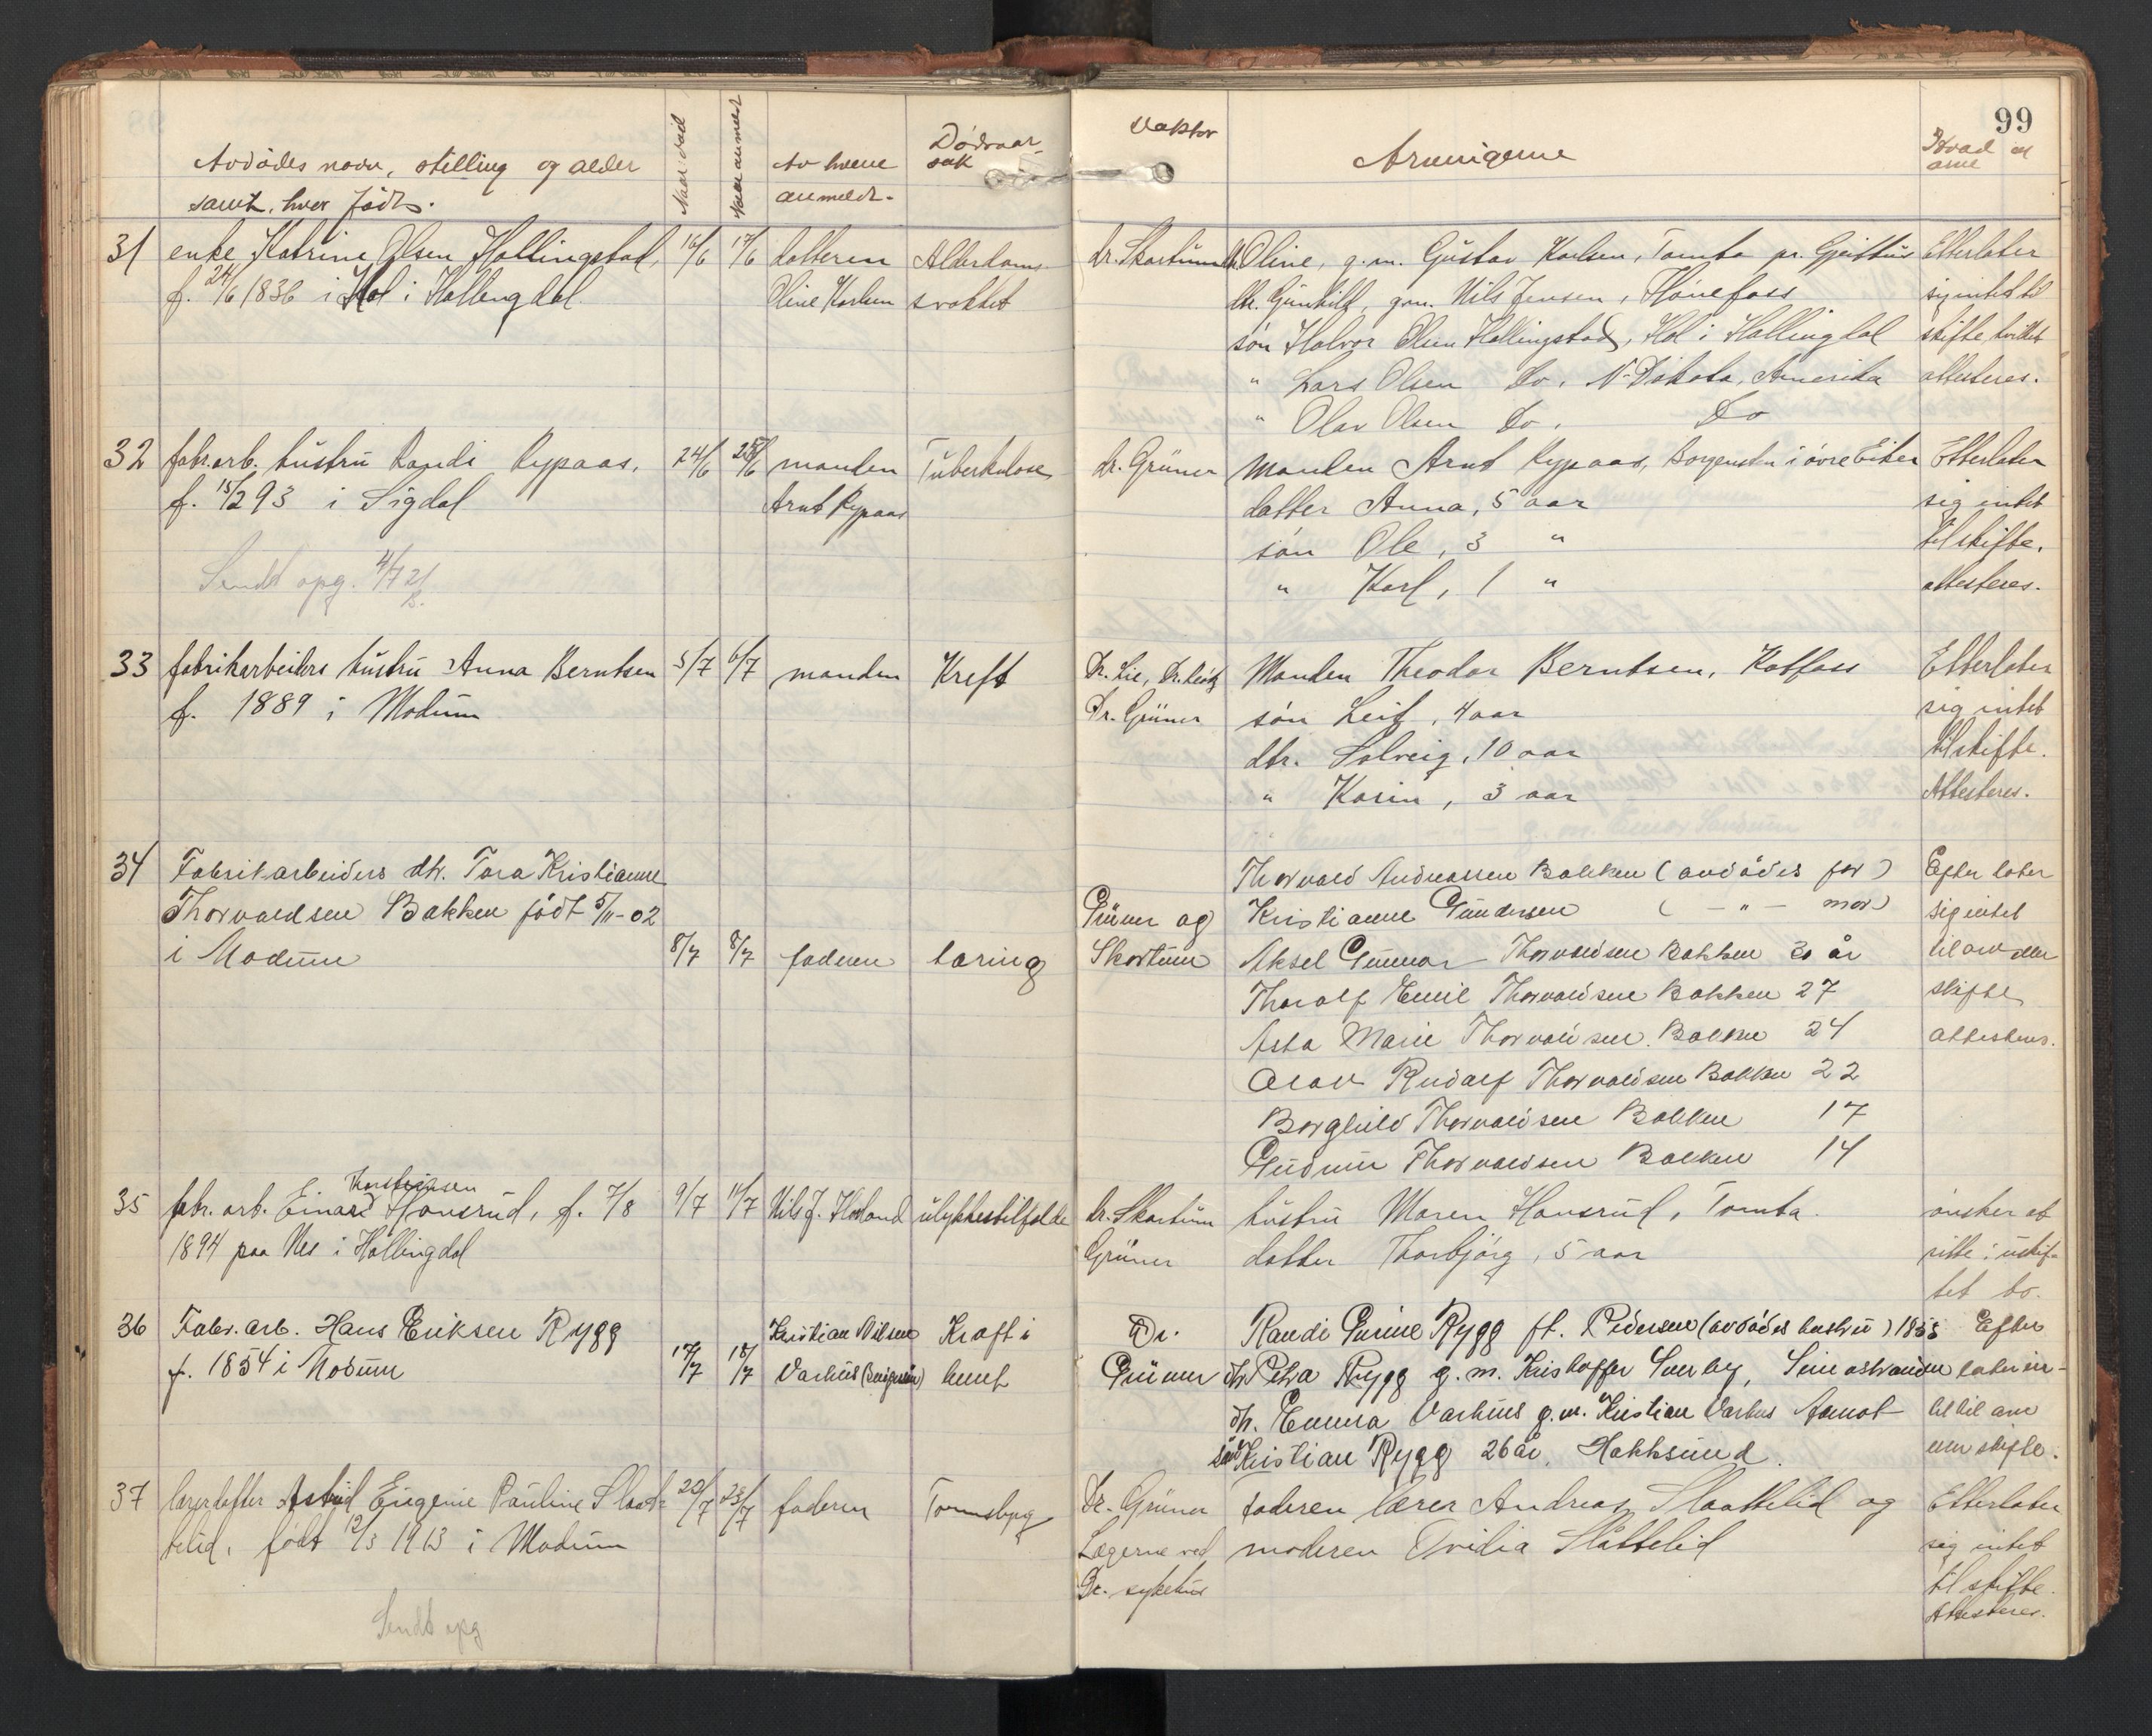 99
Avdødes navn, stilling og alder
samt, hvor født.
Naar død
Naar anmeldt
Av hvem
anmeldt.
Dødsaar
sak
Doktor
Arvingerne
Hvad er
arve
31 enke Katrine Olsen Hallingstad, 16/6 17/6 datteren Alderdoms dr. Skartum dtr. Oline, g.m. Gustav Karlsen, Tomta pr. Gjeithus Etterlater
f. 24/6 1836 i Hol i Hallingdal. Oline Karlsen svakhet dtr. Gunhild, g.m. Nils Jensen, Hönefoss sig intet til
søn Halvor Olsen Hallingstad, Hol i Hallingdal skifte hvilket
" Lars Olsen do, N-Dakota, Amerika attesteres.
" Olav Olsen do, Do
32 fabr.arb. hustru Randi Rypaas, 24/6 25/6 manden Tuberkulose dr. Grüner Manden Arnt Rypaas, Borgersten i øvre Eiker Etterlater
f. 15/2 93 i Sigdal Arnt Rypaas datter Anna, 5 aar sig intet
søn Ole, 3 " til skifte.
Sendt opg. 4/7 21 " Karl, 1 " attesteres.
33 fabrikarbeiders hustru Anna Berntsen 5/7 6/7 manden Kreft Dr. Lie, Dr. Manden Theodor Berntsen, Katfoss Etterlater
f. 1889 i Modum Dr. Grüner søn Leif, 4 aar sig intet
dtr. Solveig, 10 aar til skifte.
" Karin, 3 aar Attesteres.
34 Fabrikarbeiders dtr. Tora Kristianne Thorvald Andreassen Bakken (avdødes far) Efterlater
Thorvaldsen Bakken født 5/11-02 Grüner og Kristianne Gundersen ( — " — mor) sig intet
i Modum 8/7 8/7 faderen tæring Skartum Aksel Gunnar Thorvaldsen Bakken 30 år til arv eller
Thoralf Emil Thorvaldsen Bakken 27 skifte
Asta Marie Thorvaldsen Bakken 24 attesteres.
Olav Rudolf Thorvaldsen Bakken 22
Borghild Thorvaldsen Bakken 17
Gudrun Thorvaldsen Bakken 14
Thorsteinsen
35 fabr. arb. Einar Hansrud, f. 7/8 9/7 11/7 Nils J. Hovland ulykkestilfelde dr. Skartum hustru Maren Hansrud, Tomta. ønsker at
1894 paa Nes i Hallingdal Grüner datter Thorbjörg, 5 aar sitte i uskif-
tet bo.
36 Fabr. arb. Hans Eriksen Rygg Kristian Nilsen Kræft i Dr. Randi Gurine Rygg ft. Pedersen (avdødes hustru) 1855 Efter
f. 1854 i Modum 17/7 18/7 Varhus (svigersøn) Grüner dtr. Petra Rygg g. m. Kristoffer Sverby, later in-
dtr. Emma Varhus g.m. Kristian Varhus Aamot tet til arv
søn Kristian Rygg 26 år, Hokksund. eller skifte.
37 lærerdatter Astrid Eugenie Pauline Slaat- 22/7 23/7 faderen Dr. Grüner Faderen lærer Andreas Slaattelid og Etterlater
telid, født 12/3 1913 i Modum Lægerne ved moderen Ovidia Slåttelid sig intet
Dr. sykehus til skifte.
Sendt opg Attesteres.